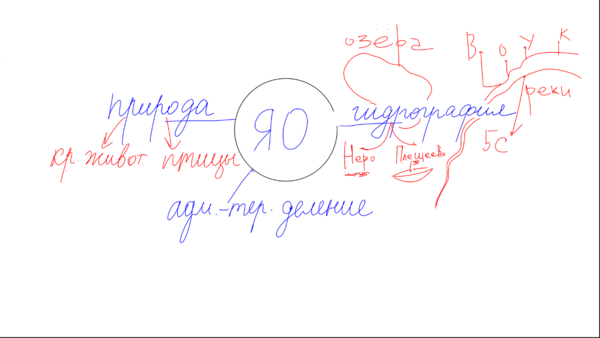 озёра
В О У К
природа
ЯО
гидрография
реки
кр. живот птицы
Неро Плещеево
5С
адм.-тер. деление